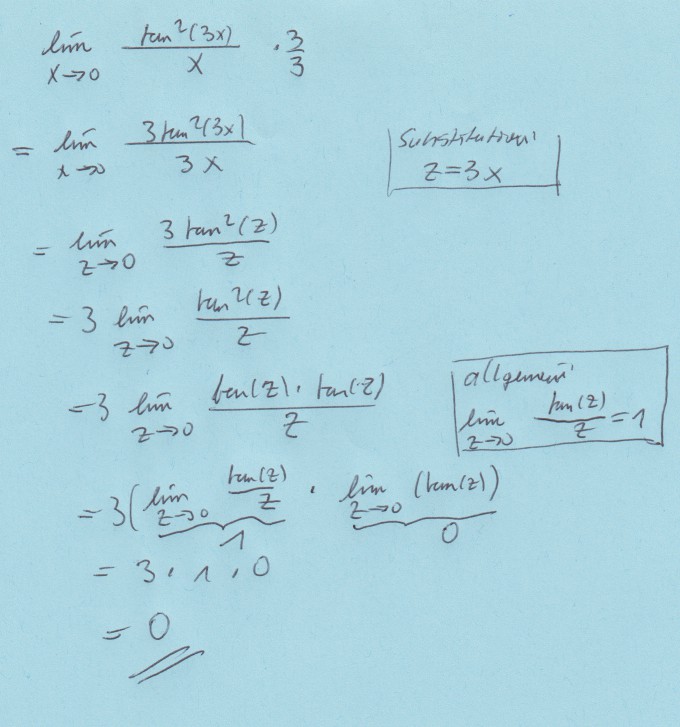 lim x→0 tan²(3x)/x · 3/3
= lim x→0 3tan²(3x)/3x
Substitution:
z=3x
= lim z→0 3tan²(z)/z
= 3 lim z→0 tan²(z)/z
=3 lim z→0 tan(z)·tan(z)/z
allgemein:
lim z→0 tan(z)/z =1
=3(lim z→0 tan(z)/z · lim z→0 (tan(z))
1 0
= 3·1·0
= 0